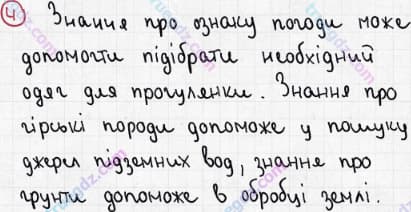 4 Знання про ознаку погоди може
допомогти підібрати необхідний
одяг для прогулянки. Знання про
гірські породи допоможе у пошуку
джерел підземних вод, знання про
грунти допоможе в обробці землі.